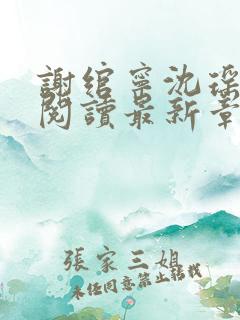 謝綰寧沈瑶
閱讀最新章
張家三姐
未经同意禁止转载